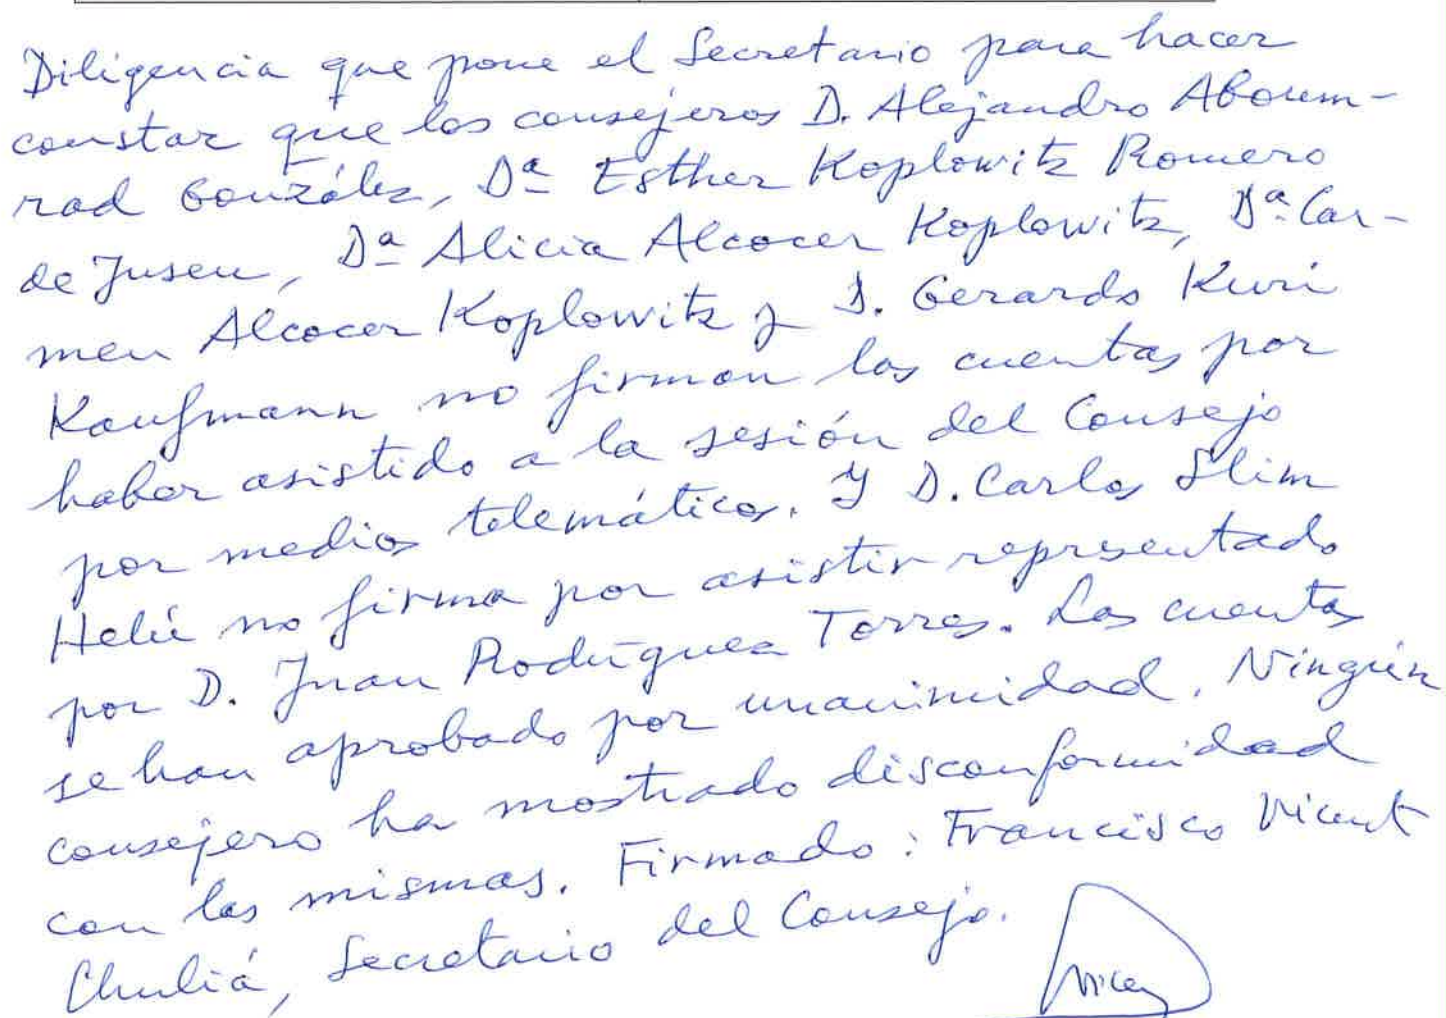 Diligencia que pone el Secretario para hacer
constar que los consejeros D. Alejandro Aboum-
rad González, Dª Esther Koplowitz Romero
de Juseu, Dª Alicia Alcocer Koplowitz, Dª Car-
men Alcocer Koplowitz y D. Gerardo Kuri
Kaufmann no firman las cuentas por
haber asistido a la sesión del Consejo
por medios telemáticos. Y D. Carlos Slim
Helú no firma por asistir representado
por D. Juan Rodríguez Torres. Las cuentas
se han aprobado por unanimidad. Ningún
consejero ha mostrado disconformidad
con las mismas. Firmado: Francisco Vicent
Chuliá, Secretario del Consejo.